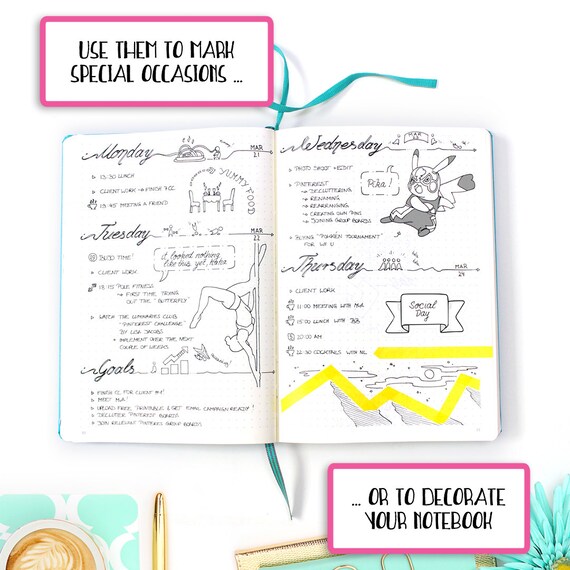 USE THEM TO MARK
SPECIAL OCCASIONS ...
Monday
MAR
21
13:30 LUNCH
CLIENT WORK → FINISH
MEETING A FRIEND
YUMMY FOOD
Tuesday
MAR
22
TIME!
CLIENT WORK
POLE FITNESS
→ FIRST TIME TRYING
OUT THE "BUTTERFLY"
it looked nothing
like this yet, Haha
WATCH THE LUMINARIES CLUB
"PINTEREST CHALLENGE"
BY LISA JACOBS
→ IMPLEMENT OVER THE NEXT
COUPLE OF WEEKS
Goals
CLIENT
UPLOAD FREE PRINTABLE & GET EMAIL CAMPAIGN READY!
DECLUTTER PINTEREST BOARDS
JOIN RELEVANT PINTEREST GROUP BOARDS
Wednesday
MAR
PHOTO SHOOT + EDIT
PINTEREST
→ DECLUTTERING
→ RENAMING
→ REARRANGING
→ CREATING OWN PINS
→ JOINING GROUP BOARDS
BUYING "POKKÉN TOURNAMENT"
FOR WII U
Pika!
Thursday
MAR
24
CLIENT WORK
11:00 MEETING WITH
LUNCH WITH
10:00 AM
COCKTAILS WITH
Social
Day
... OR TO DECORATE
YOUR NOTEBOOK